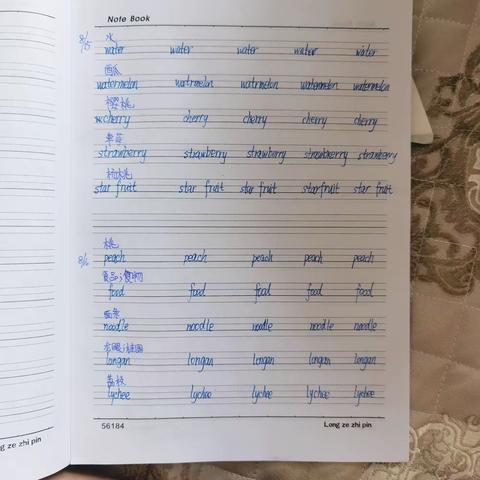 Note Book
8/15 水
water water water water water
西瓜
watermelon watrmelon watrmelon watermelon watermelon
樱桃
cherry cherry cherry cherry cherry
草莓
strawberry strawberry strawbirry strawbkerry strawberry
杨桃
star fruit star fruit star fruit starfruit star fruit
桃
8/16 peach peach peach peach peach
食品;食物
food food food food food
面条
noodle noodle noodle noodle noodle
龙眼;桂圆
longan longan longan longan longan
荔枝
lychee lychee lychee lychee lychee
56184 Long ze zhi pin
g ze zhi pin